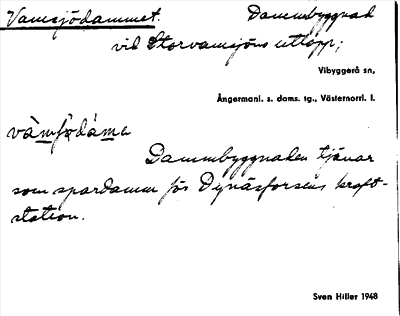 Vamsjödammet. Dammbyggnad
vid Storvamsjöns utlopp;
Vibyggerå sn,
Ångermanl. s. doms. tg., Västernorrl. l.
vàmfödáme
Dammbyggnaden tjänar
som spardamm för Dynäsforsens kraft-
station.
Sven Hiller 1948